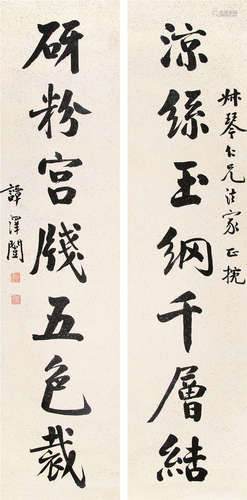 叔琴仁兄法家正挽
凉丝玉網千層結
研粉宮牋五色裁
譚澤闓